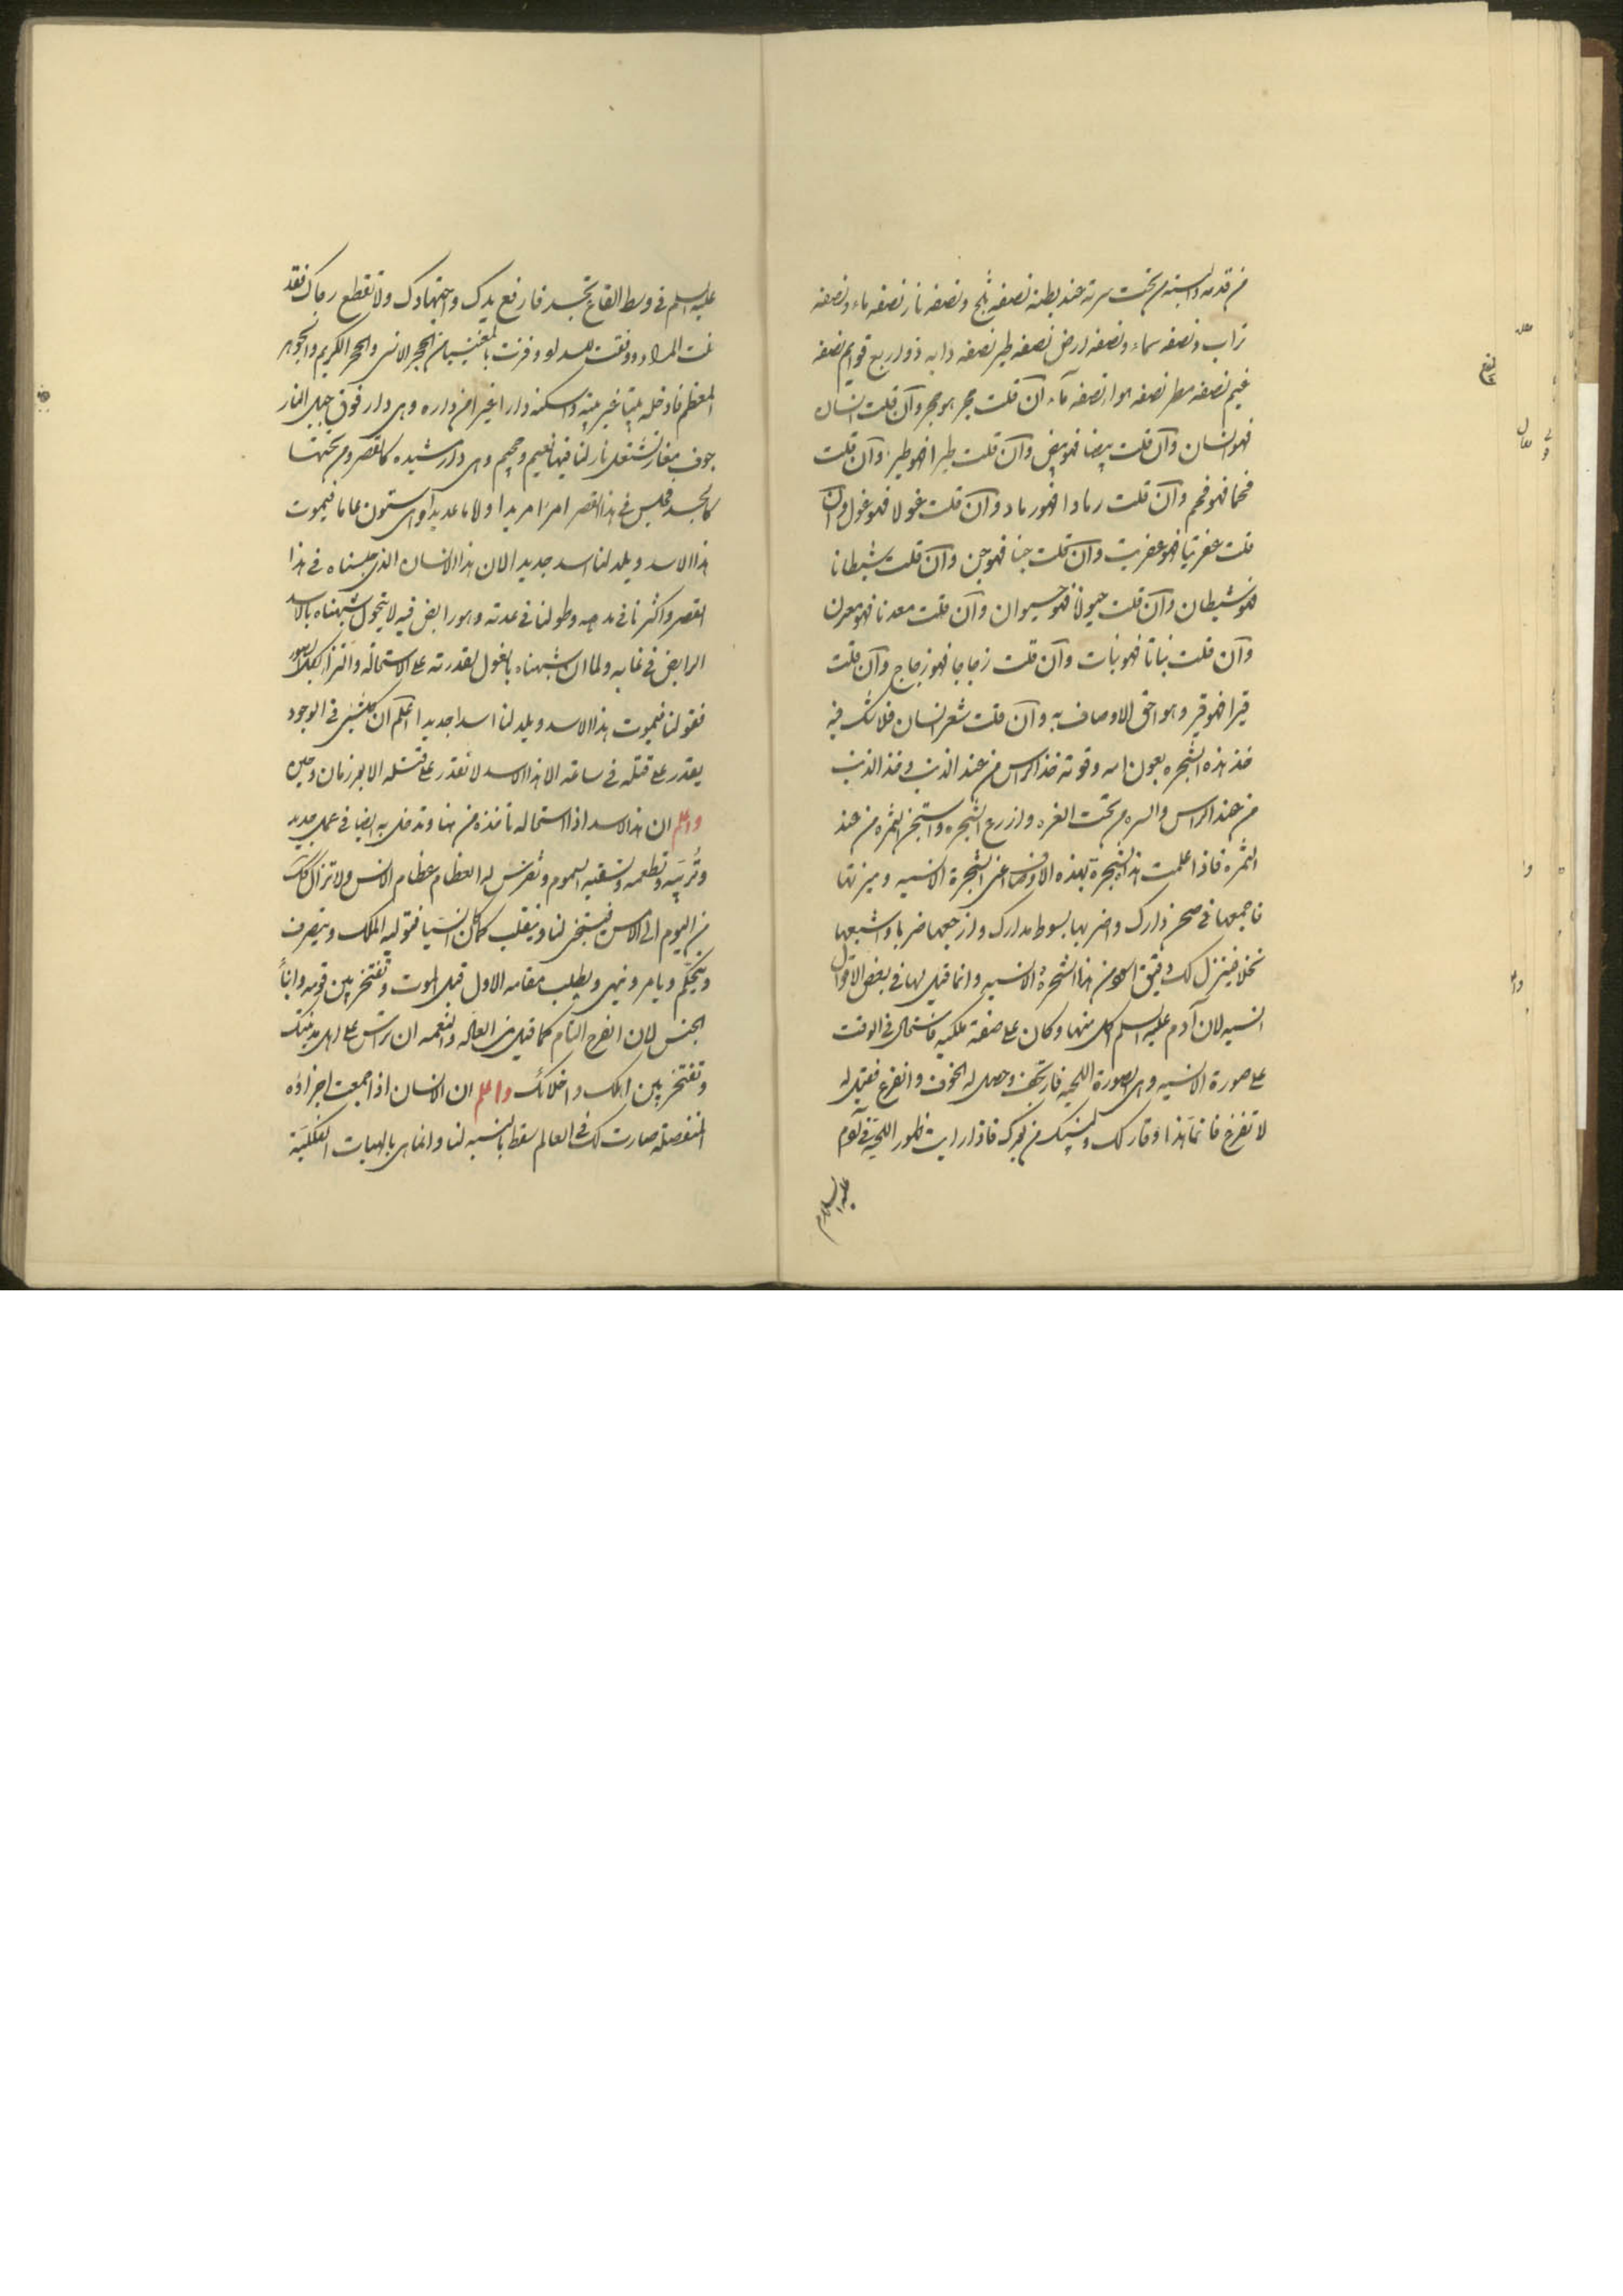 من قدمه والسته من تحت سرته عند بطنه نصفه ثلج ونصفه نار نصفه ماء ونصفه
تراب ونصفه سماء ونصفه ارض نصفه طير نصفه دابه ذو اربع قوايم نصفه
غيم نصفه مطر نصفه هوا نصفه ماء آن قلت حجر هو حجر وآن قلت انسان
فهو انسان وآن قلت بيضا فهو بيض وآن قلت طيرا فهو طير وآن قلت
فحما فهو فحم وآن قلت رمادا فهو رماد وآن قلت غولا فهو غول وآن
قلت عفريتا فهو عفريت وآن قلت جنا فهو جن وآن قلت شيطانا
فهو شيطان وآن قلت حيوانا فهو حيوان وآن قلت معدنا فهو معدن
وآن قلت نباتا فهو نبات وآن قلت زجاجا فهو زجاج وآن قلت
قيرا فهو قير وهو احق الاوصاف به وآن قلت شعر انسان فلا شك فيه
فخذ هذه الشجره بعون الله وقوته خذ الراس من عند الذنب وخذ الذنب
من عند الراس والسره من تحت الغره وازرع الشجره واستخرج الثمره من عند
الثمره فاذا علمت هذا الشجرة بهذه الاوصاف اعنى الشجرة الانسيه وميزتها
فاجمعها فى صحن دارك واضربها بسوط مدارك وازجعها ضربا واشبعها
نخلا فينزل لك دقيق من هذا الشجرة الانسيه وانما قيل لها فى بعض الاقوال
انسيه لان آدم عليه السلم اكل منها وكان على صفة ملكيه فاستحال فى الوقت
على صورة الانسيه وهى الصورة اللحيه فارتجف وحصل له الخوف والفزع فقيل له
لا تفزع فانما هذا وقار لك من فاذا رايت ظهور اللحية فى آدم
عليه السلام
عليه السلم فى وسط القاع تجسد فارفع يدك واجتهادك ولا تقطع رجاك فقد
نلت المراد ووفقت وفزت بالمغنيسيا من الحجر الانسى والحجر الكريم والجوهر
المعظم فادخله بيتا غير بيته واسكنه دارا غير داره وهى دار فوق جبل النار
جوف مغار تشتعل نار لنا فيها نعيم وجحيم وهى دار مشيده كالقصر ومن تحتها
كالجسد فحبس فى هذا القصر امرا مريدا واياما عديدا وهى ستون عاما فيموت
هذا الاسد ويلد لنا اسد جديد الان هذا الانسان الذى حبسناه فى هذا
القصر واكثرنا فى مدحه وطولنا فى عدته وهو رابض فيه لا يتحول شبهناه بالاسد
الرابض فى غابه ولما ان شبهناه بالغول لقدرته على الاستحاله
فقولنا فيموت هذا الاسد ويلد لنا اسدا جديدا اعلم ان كل شىء فى الوجود
يقدر على قتله فى ساعته الا هذا الاسد لا تقدر على قتله الا بمر زمان وحين
واعلم ان هذا الاسد اذا استحاله تاخذه من هنا وتدخل به ايضا فى عمل جديد
وتربيه وتطعمه وتسقيه السموم وتفرش له العظام عظام الانس ولا تزال كذلك
من اليوم الى الامس فيستجن لنا وينقلب كما كان انسيا فتوليه الملك ويتصرف
ويتحكم ويامر وينهى ويطلب مقامه الاول قبل الموت وتفتخر بين قومه وابناء
الجنس لان الفرح التام كما قيل من العاله والنعمه ان ترش على اهل مدينتك
وتفتخر بين اهلك واخلائك واعلم ان الانسان اذا جمعت اجزاؤه
المنفصلة صارت لك فى العالم سقط بالنسبه لنا وانما هى بالهيات الفلكية